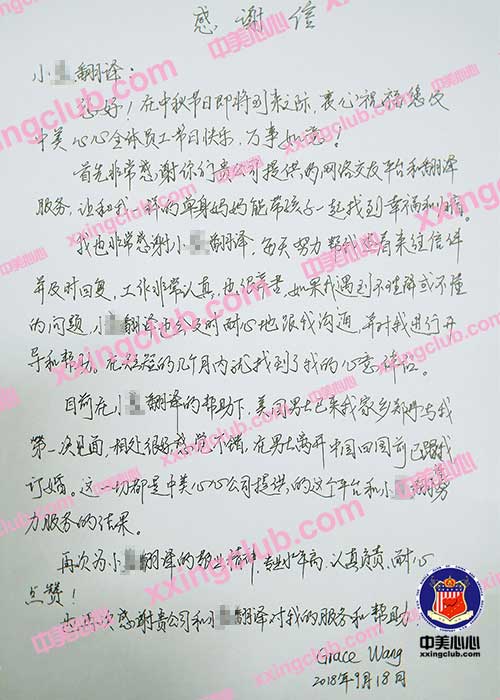 感谢信
小 翻译：
您好！在中秋节日即将到来之际，衷心祝福您及
中美心心全体员工节日快乐，万事如意！
首先非常感谢你们贵公司提供的网络交友平台和翻译
服务，让和我一样的单身妈妈能带孩子一起找到幸福和
我也非常感谢小 翻译，每天努力 我 看来往信件
并及时回复，工作非常认真，也很辛苦，如果我遇到不理解或不懂
的问题，小 翻译也会及时耐心地跟我沟通，并对我进行开
导和帮助。在 的几个月内就找到了我的心意伴侣。
目前在小 翻译的帮助下，美国男士已来我家乡 与我
第一次见面，相处很好感觉不错，在男士离开中国回国前已跟我
订婚。这一切都是中美心心公司提供的这个平台和小 翻译努
力服务的结果。
再次为小 翻译的敬业精神，专业水平高，认真负责，耐心
点赞！
再次感谢贵公司和小 翻译对我的服务和帮助
Grace Wang
2018年9月18日
中美心心
xxingclub.com